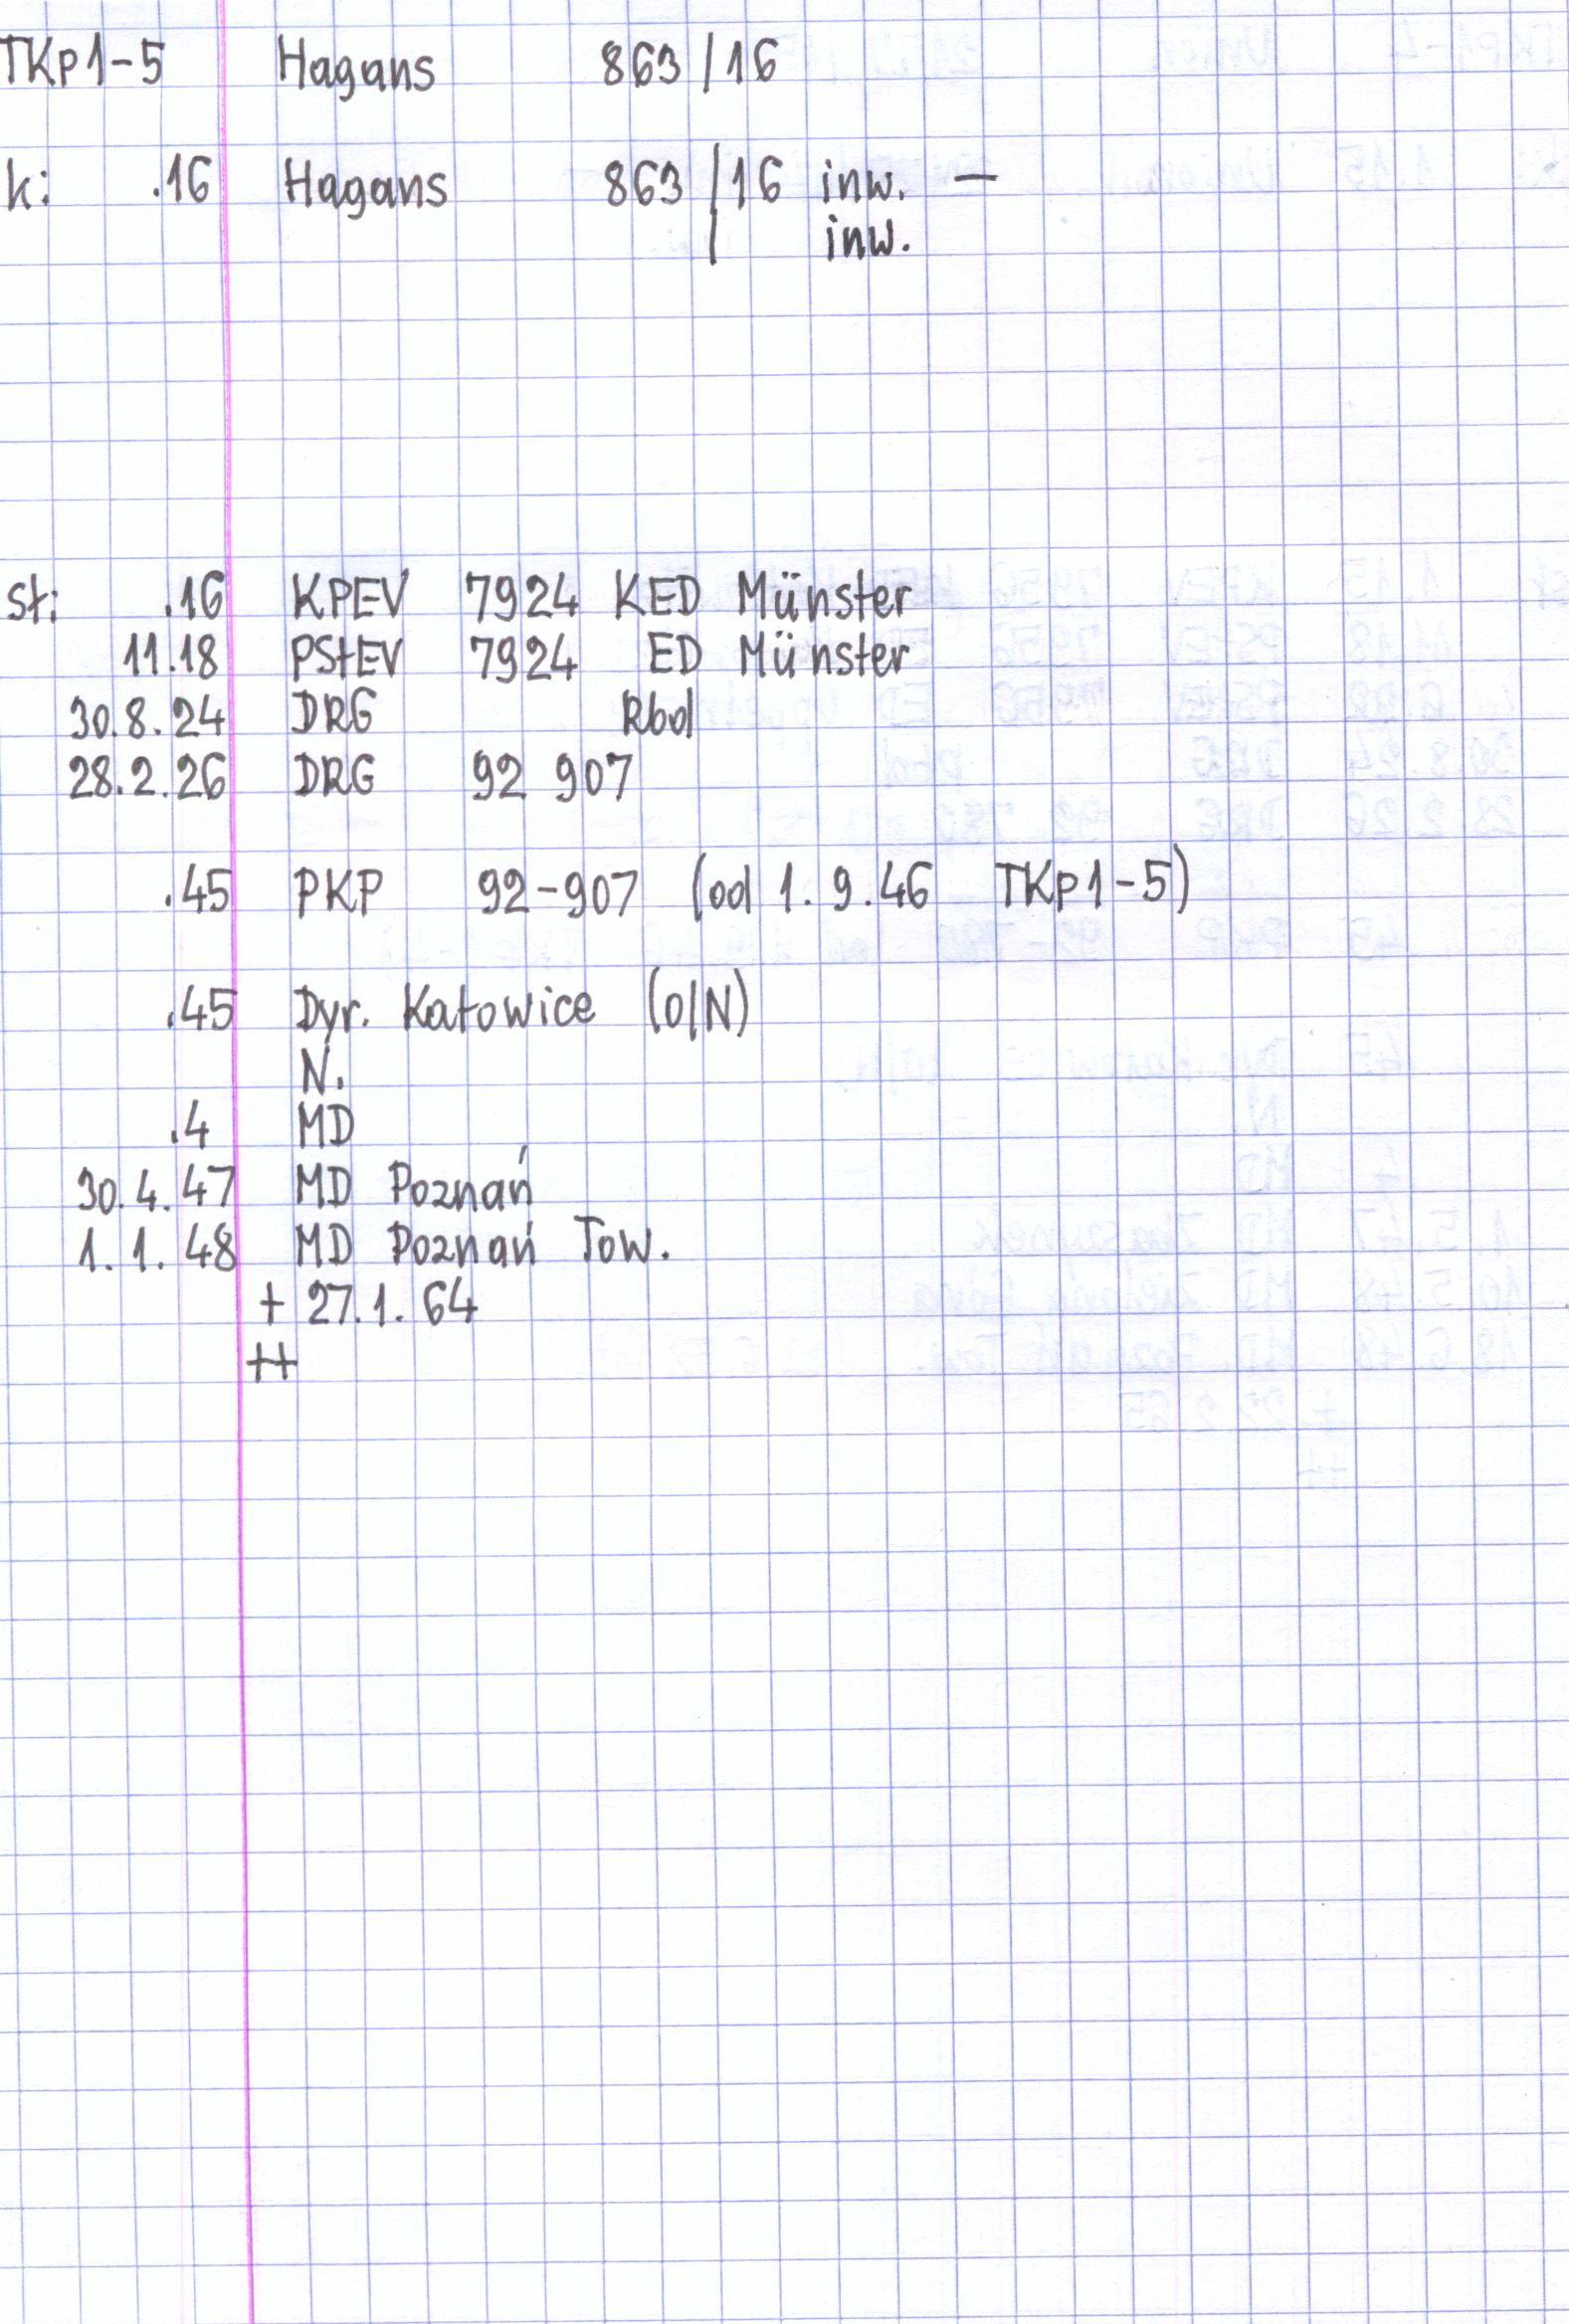 TKp1-5 Hagans 863/16
k: .16 Hagans 863/16 inw. —
/ inw.
st: .16 KPEV 7924 KED Münster
11.18 PStEV 7924 ED Münster
30.8.24 DRG Rbd
28.2.26 DRG 92 907
.45 PKP 92-907 (od 1.9.46 TKp1-5)
.45 Dyr. Katowice (O/N)
N.
.4 MD
30.4.47 MD Poznań
1.1.48 MD Poznań Tow.
+ 27.1.64
++